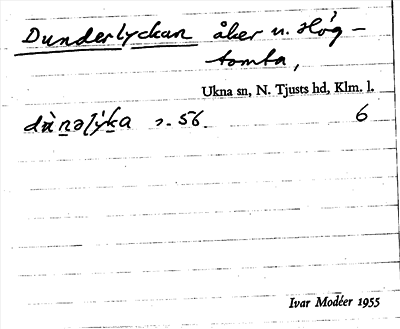 Dunderlyckan åker u. Hög-
tomta,
Ukna sn, N. Tjusts hd, Klm. l.
s. 56. 6
Ivar Modéer 1955